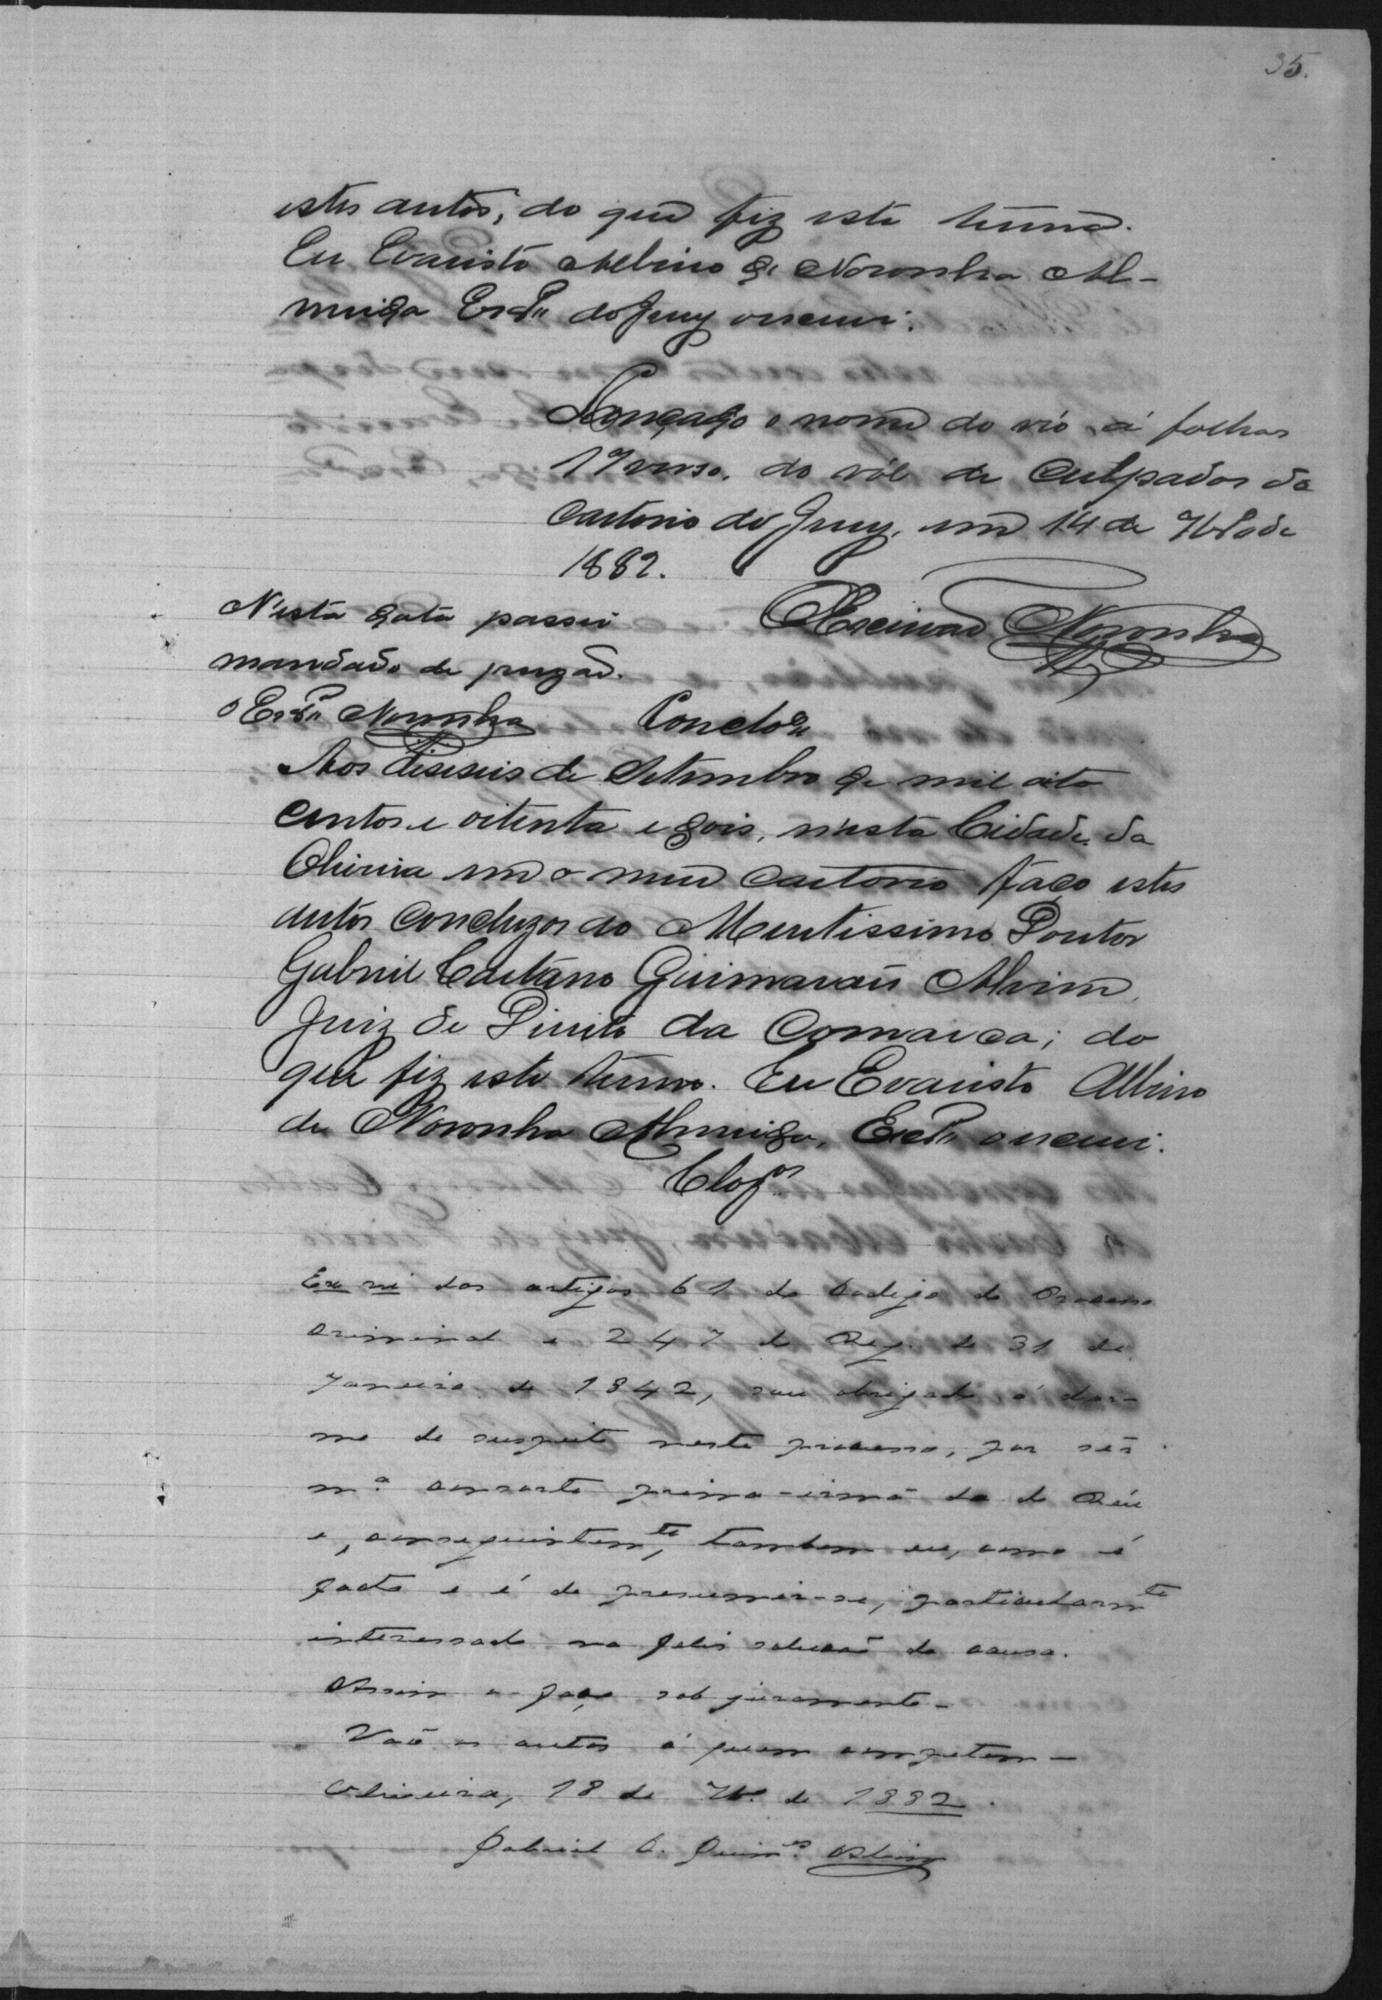 35.
estes autos, do que fiz este termo.
Eu Evaristo Albino de Noronha Al-
meida Escr.m do Jury o escrevi.
Lançado o nome do réo á folhas
17 verso, do ról de culpados do
cartorio do Jury, em 14 de 7br.o de
1882.
O Escrivaõ Noronha
N'esta data passei
mandado de prizaõ.
O Escr.m Noronha
Concl.os
Aos diseseis de Setembro de mil oito
centos e oitenta e dois, n'esta Cidade da
Oliveira em o meu cartorio faço estes
autos concluzos ao Meritissimo Doutor
Gabriel Caetano Guimaraẽs Alvim,
Juiz de Direito da Comarca; do
que fiz este termo. Eu Evaristo Albino
de Noronha Almeida, Escr.m o escrevi.
Clz.os
Ex vi dos artigos 61 do Codigo do Processo
Criminal e 247 do Reg. de 31 de
Janeiro de 1842, sou obrigado á dar-
me de suspeito neste processo, por sêr
m.a consorte prima-irmã da do Réu
e, conseguintem.te, tambem eu, como é
facto e é de presumir-se, particularm.te
interessado na feliz solucaõ da causa.
Assim o faço sob juramento.
Vaõ os autos á quem competem.
Oliveira, 18 de 7br. de 1882.
Gabriel C. Guim.es Alvim